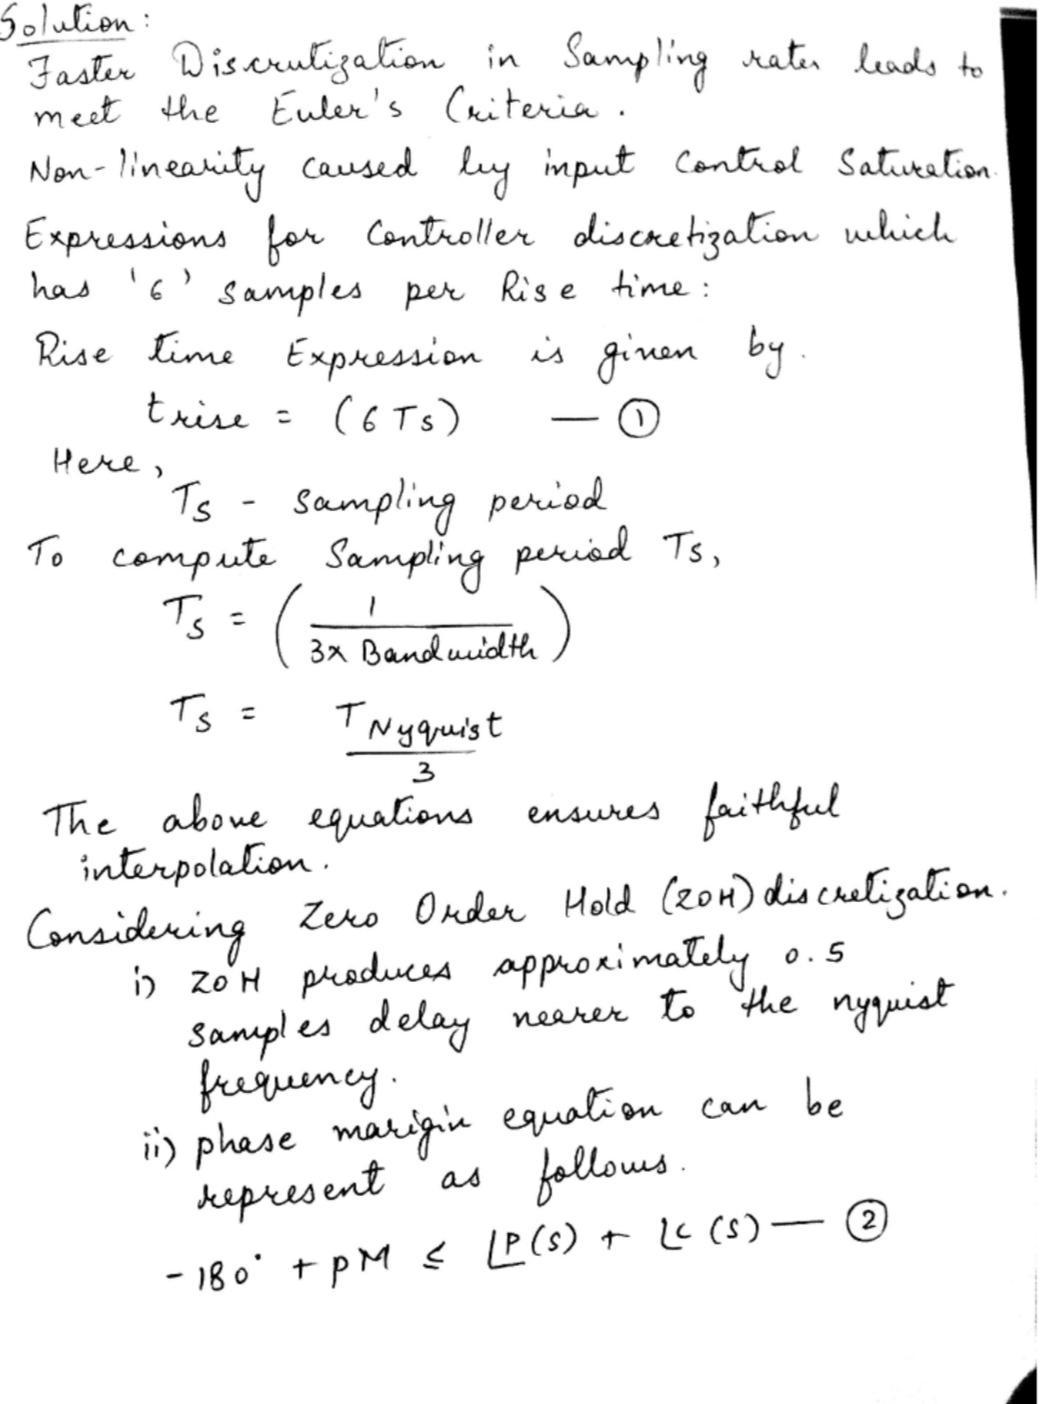 Solution:
Faster Discrutization in Sampling rates leads to
meet the Euler's Criteria.
Non-linearity caused by input Control Saturation.
Expressions for Controller discretization which
has '6' samples per Rise time:
Rise time Expression is given by.
trise = (6 Ts) — ①
Here,
Ts - sampling period
To compute Sampling period Ts,
Ts = (1 / 3x Bandwidth)
Ts = T Nyquist / 3
The above equations ensures faithful
interpolation.
Considering Zero Order Hold (ZOH) discretization.
i) ZOH produces approximately 0.5
samples delay nearer to the nyquist
frequency.
ii) phase marigin equation can be
represent as follows.
-180° + pM ≤ ∠P(s) + ∠C(s) — ②